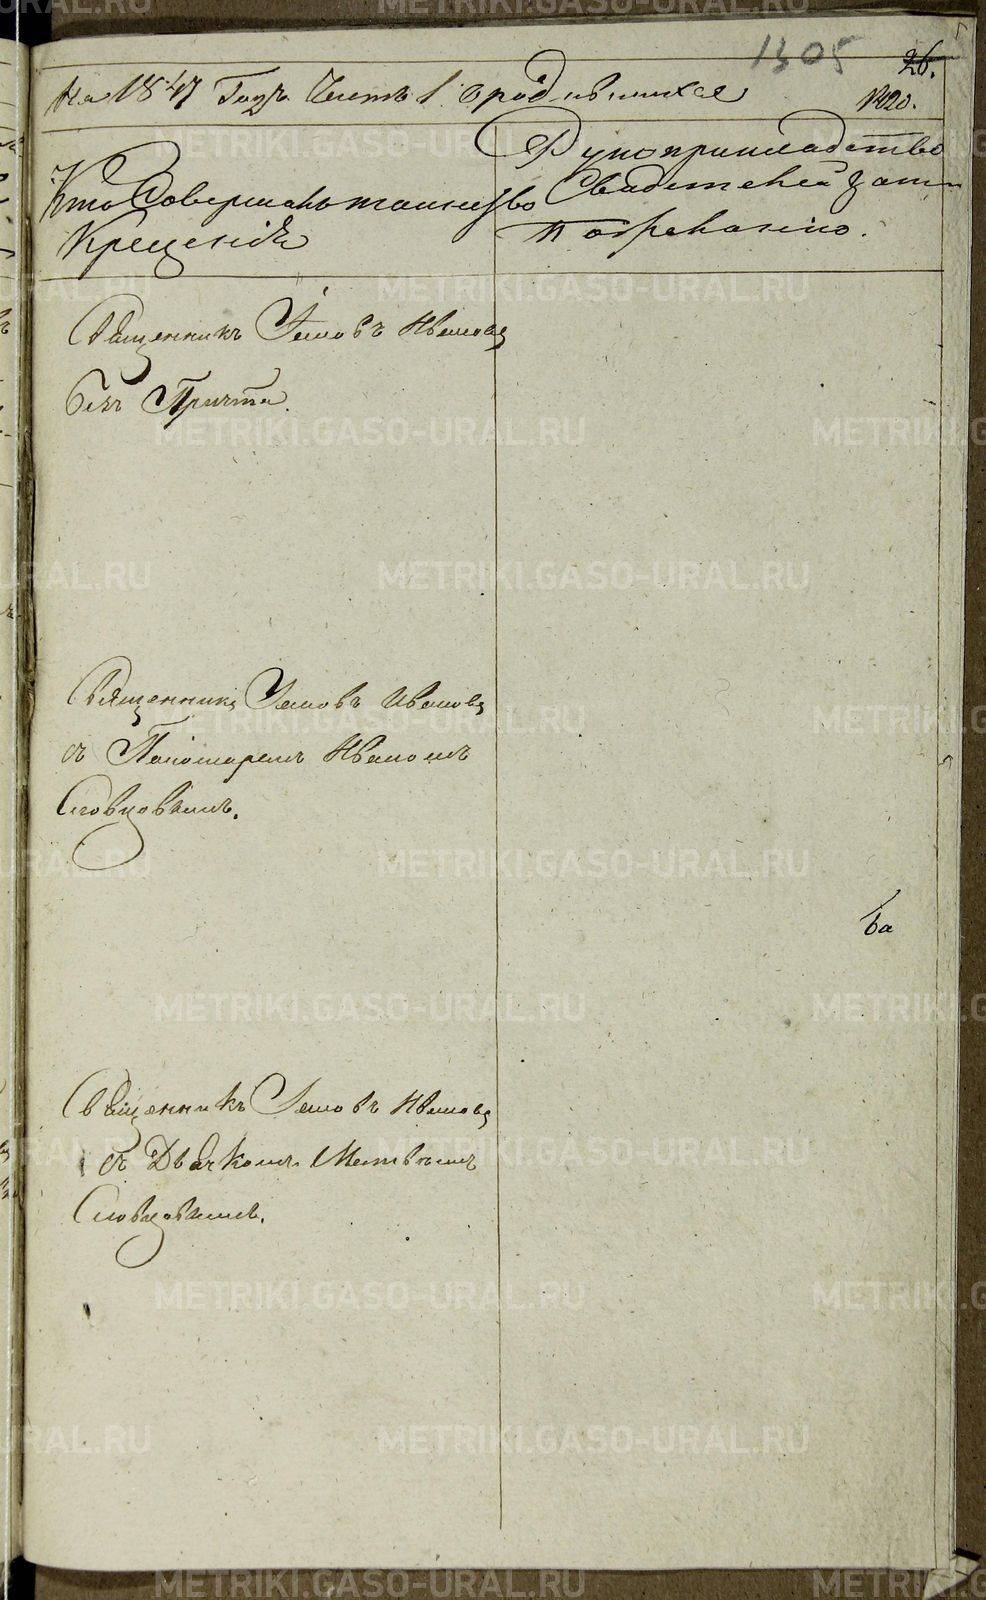 1305
26.
1020.
На 1847 Годъ Часть 1. о родившихся
Кто Совершалъ таинство
Крещенія
Рукоприкладство
Свидетелей записи
по желанію.
Священникъ Іаковъ Ивановъ
безъ Причта.
Священникъ Іаковъ Ивановъ
съ Пономаремъ Иваномъ
Словцовымъ.
Священникъ Іаковъ Ивановъ
съ Дьячкомъ Матвѣемъ
Словцовымъ.
METRIKI.GASO-URAL.RU